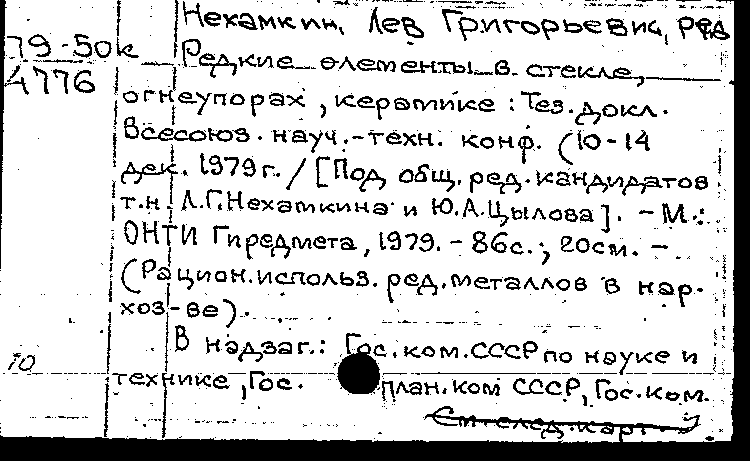 Нехамкин, Лев Григорьевич, ред
79-50к
Редкие элементы в стекле,
4776
огнеупорах, керамике: Тез. докл.
Всесоюз. науч.-техн. конф. (10-14
дек. 1979 г. / [Под общ. ред. кандидатов
т.н. Л.Г. Нехамкина и Ю.А. Цылова]. - М.:
ОНТИ Гиредмета, 1979. - 86с.; 20см. -
(Рацион. использ. ред. металлов в нар.
хоз-ве).
В надзаг.: Гос. ком. СССР по науке и
10
технике, Гос. план. ком СССР, Гос. ком.
См. след. карт.